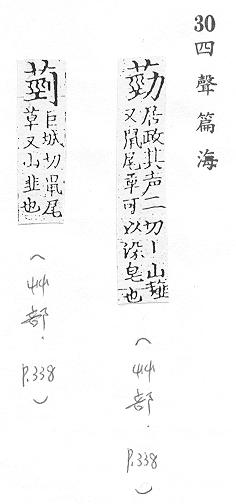 30 四聲篇海
葝
居政其声二切丨山薤
又鼠尾草可以染皂也
(艸部.
P.338)
巨城切鼠尾
草又山韭也
(艸部.
P.338)